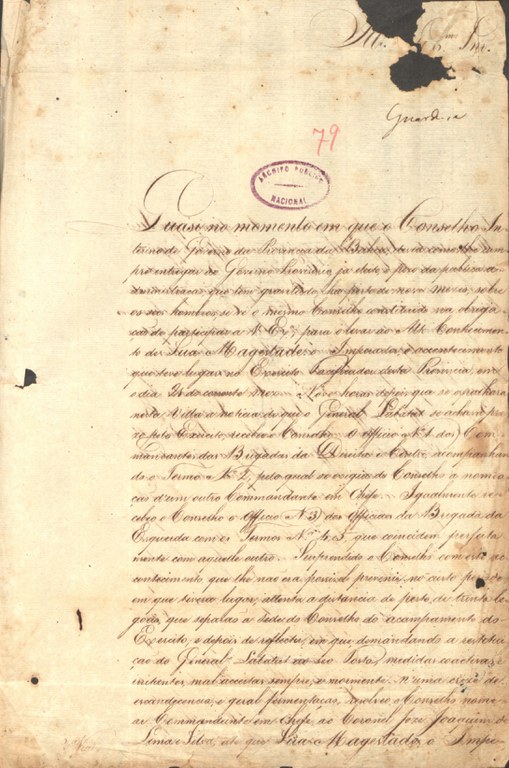 Ill. Snr.
Guardi-se
79
ARCHIVO PUBLICO
NACIONAL
Quase no momento em que o Conselho In-
terino de Governo da Provincia da Bahia
pro entregar ao Governo Provisorio, ja eleito, o peso da publica ad-
ministração, que tem gravitado, ha perto de nove mezes, sobre
os seos hombros, se vê o mesmo Conselho constituido na obriga-
ção de participar a V. Exa. para elevar ao Alto Conhecimen-
to de Sua Magestade o Imperador, o acontecimento
que teve lugar no Exercito Pacificador desta Provincia, em
o dia 21 do corrente mez. Nove horas depois que se espalhara
nesta Villa a noticia de que o General Labatut se achava pre-
zo pelo Exercito, recebeo o Conselho o Officio N.º 1 dos Com-
mandantes das Brigadas da Direita e Centro, acompanhan-
do o Termo N.º 2, pelo qual se exigia do Conselho a nomea-
ção d'um outro Commandante em Chefe. Igualmente re-
cebeo o Conselho o Officio N.º 3 dos Officiaes da Brigada da
Esquerda com os Termos N.os 4, e 5, que coincidem perfeita-
mente com aquelle outro. Surprendido o Conselho com este a-
contecimento que lhe não era possivel prevenir, no curto periodo
em que tivera lugar, attenta a distancia de perto de trinta le-
goas, que separas a sede do Conselho do acampamento do
Exercito, e depois de reflectir, em que demandando a restitui-
ção do General Labatut ao seo Posto, medidas coactivas, e
violentas, mal acceitas sempre, e mormente n'uma crize de
escandecencia, e geral fermentação, resolveo o Conselho nome-
ar Commandante em Chefe, ao Coronel Joze Joaquim de
Lima e Silva, até que Sua Magestade o Impe-